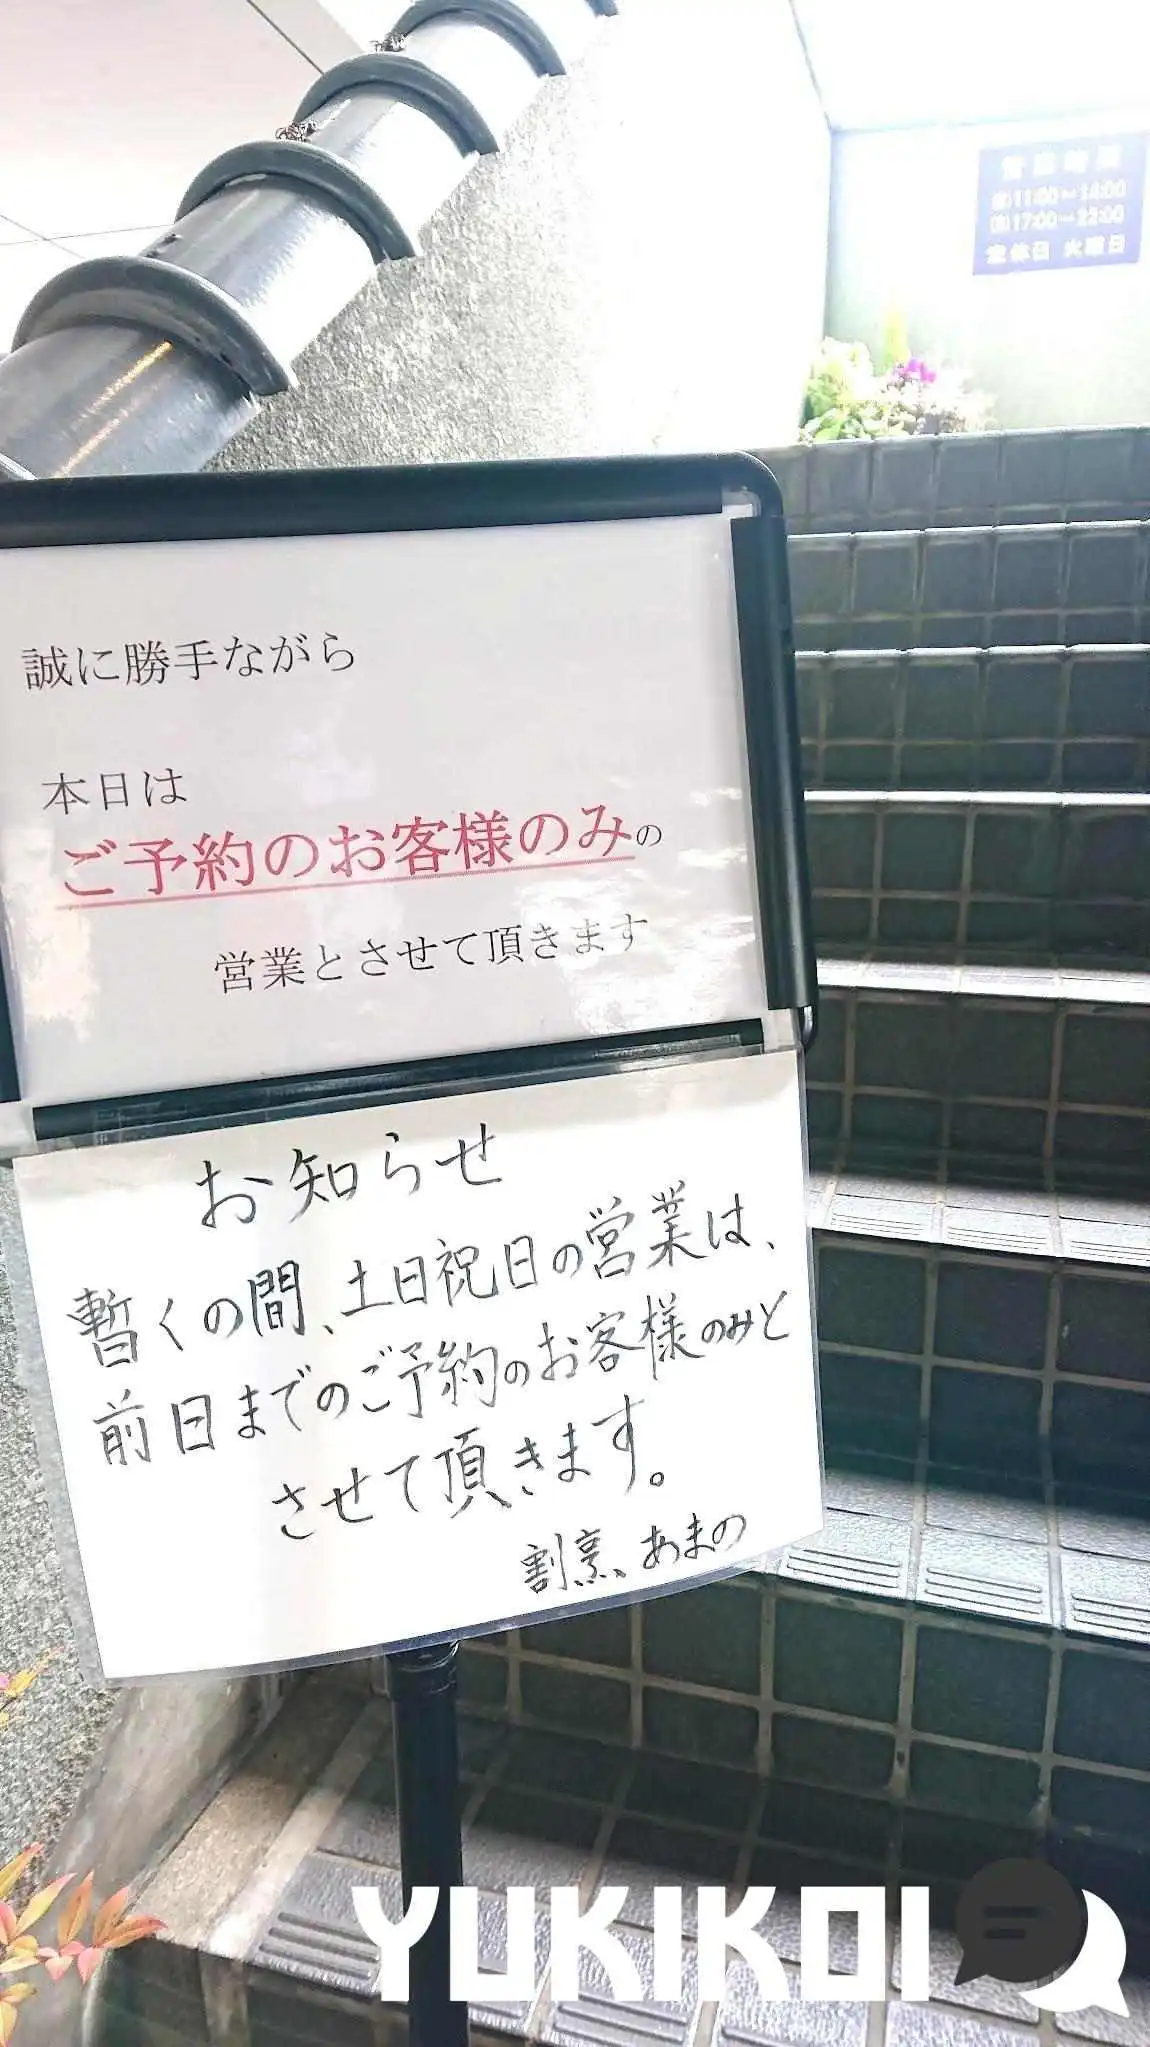 営業時間
11:00〜14:00
17:00〜22:00
定休日 火曜日
誠に勝手ながら
本日は
ご予約のお客様のみの
営業とさせて頂きます
お知らせ
暫くの間、土日祝日の営業は、
前日までのご予約のお客様のみと
させて頂きます。
割烹、あまの
YUKIKOI